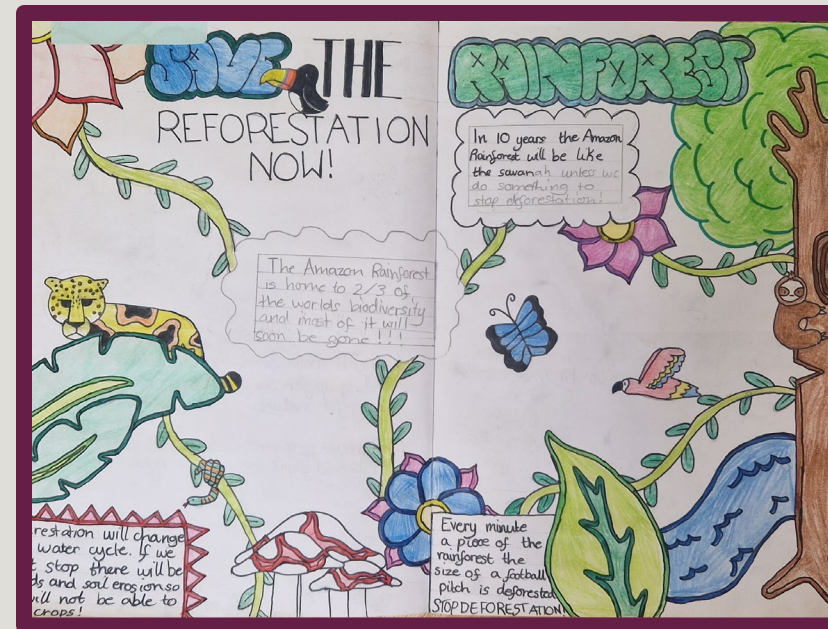 SAVE THE RAINFOREST
REFORESTATION
NOW!
In 10 years the Amazon
Rainforest will be like
the savanah unless we
do something to
stop deforestation!
The Amazon Rainforest
is home to 2/3 of
the worlds biodiversity
and most of it will
soon be gone!!!
restation will change
water cycle. If we
t stop there will be
ds and soil erosion so
will not be able to
crops!
Every minute
a piece of the
rainforest the
size of a football
pitch is deforested
STOP DEFORESTATION!